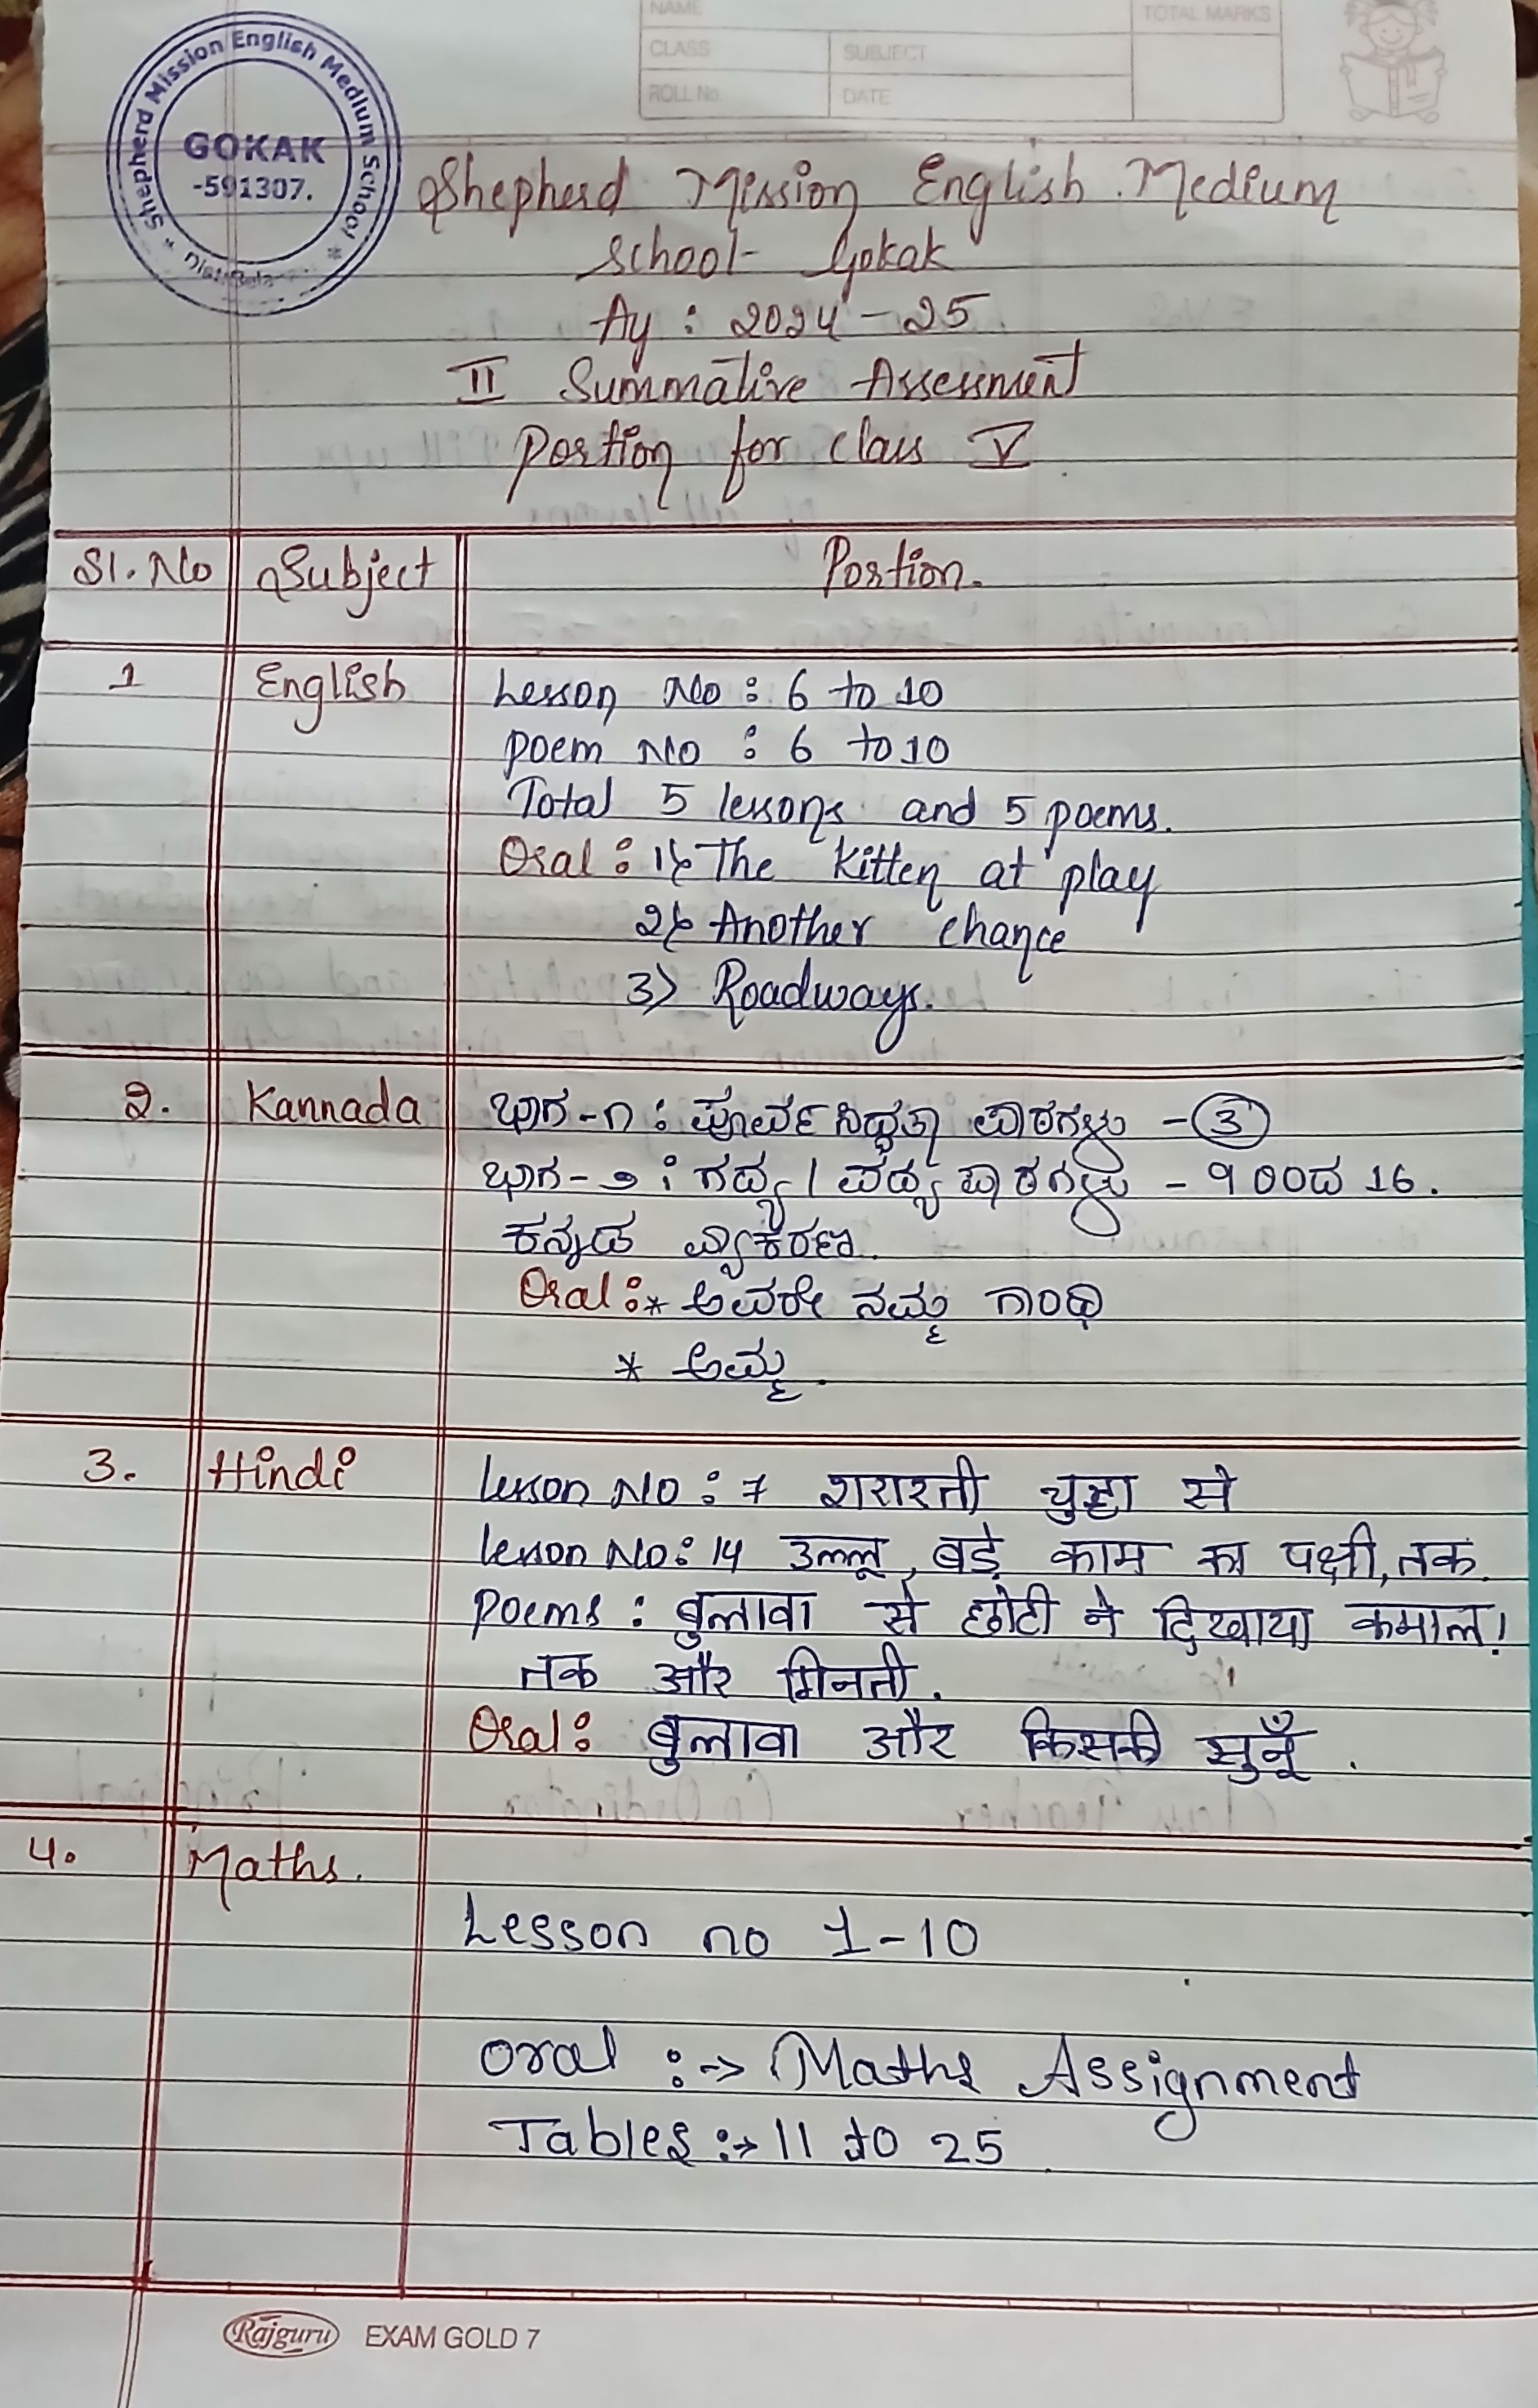 NAME
TOTAL MARKS
CLASS
SUBJECT
ROLL No
DATE
Shepherd Mission English Medium School
GOKAK
-591307.
Shepherd Mission English Medium
School- Gokak
Ay : 2024-25
II Summative Assessment
Portion for class V
Sl. No Subject Portion.
1 English Lesson No : 6 to 10
Poem No : 6 to 10
Total 5 lessons and 5 poems.
Oral : 1) The Kitten at play
2) Another chance
3) Roadways.
2. Kannada ಭಾಗ-೧ : ಪೂರ್ವಸಿದ್ಧತಾ ಪಾಠಗಳು - 3
ಭಾಗ-೨ : ಗದ್ಯ / ಪದ್ಯ ಪಾಠಗಳು - 9 ರಿಂದ 16.
ಕನ್ನಡ ವ್ಯಾಕರಣ.
Oral : * ಅವರೇ ನಮ್ಮ ಗಾಂಧಿ
* ಅಮ್ಮ.
3. Hindi Lesson No : 7 शरारती चुहा से
lesson No : 14 उल्लू, बड़े काम का पक्षी, तक.
Poems : बुलावा से छोटी ने दिखाया कमाल!
तक और गिनती.
Oral : बुलावा और किसकी सुनूँ.
4. Maths.
Lesson no 1-10
Oral :-> Maths Assignment
Tables :-> 11 to 25
Rajguru EXAM GOLD 7